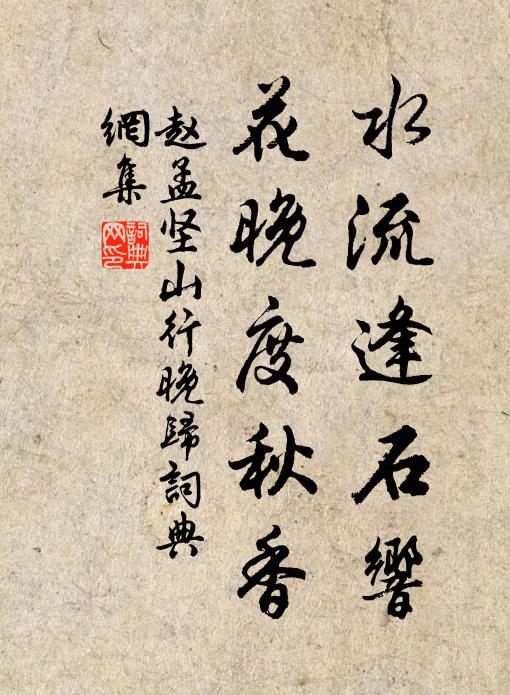 水流逢石響
花晚度秋香
赵孟坚山行晚歸詞典
網集
詞典網印